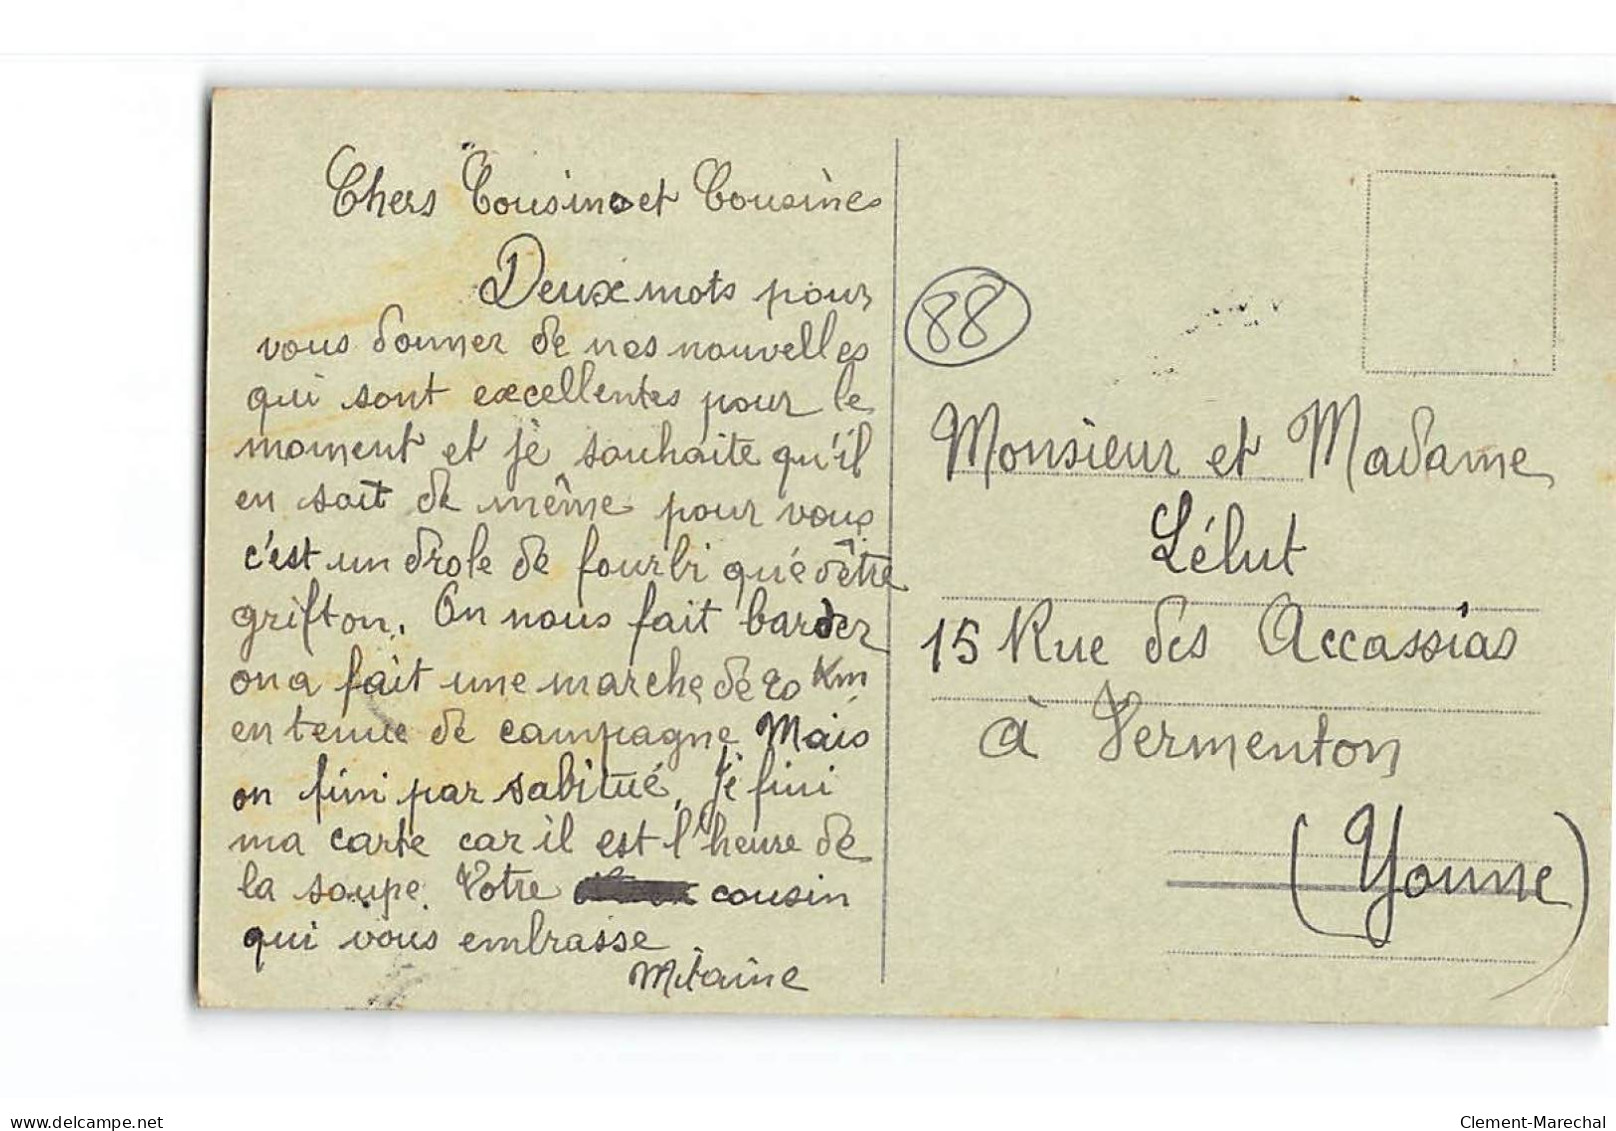 Chers Cousins et Cousines
Deux mots pour
vous donner de nos nouvelles
qui sont excellentes pour le
moment et je souhaite qu'il
en soit de même pour vous
c'est un drole de fourbi que d'être
grifton. On nous fait barder
on a fait une marche de 20 Km
en tenue de campagne Mais
on fini par sabitué. Je fini
ma carte car il est l'heure de
la soupe. Votre cousin
qui vous embrasse
Mitaine
88
Monsieur et Madame
Lélut
15 Rue des Accassias
à Vermenton
(Yonne)
www.delcampe.net
Clement-Marechal